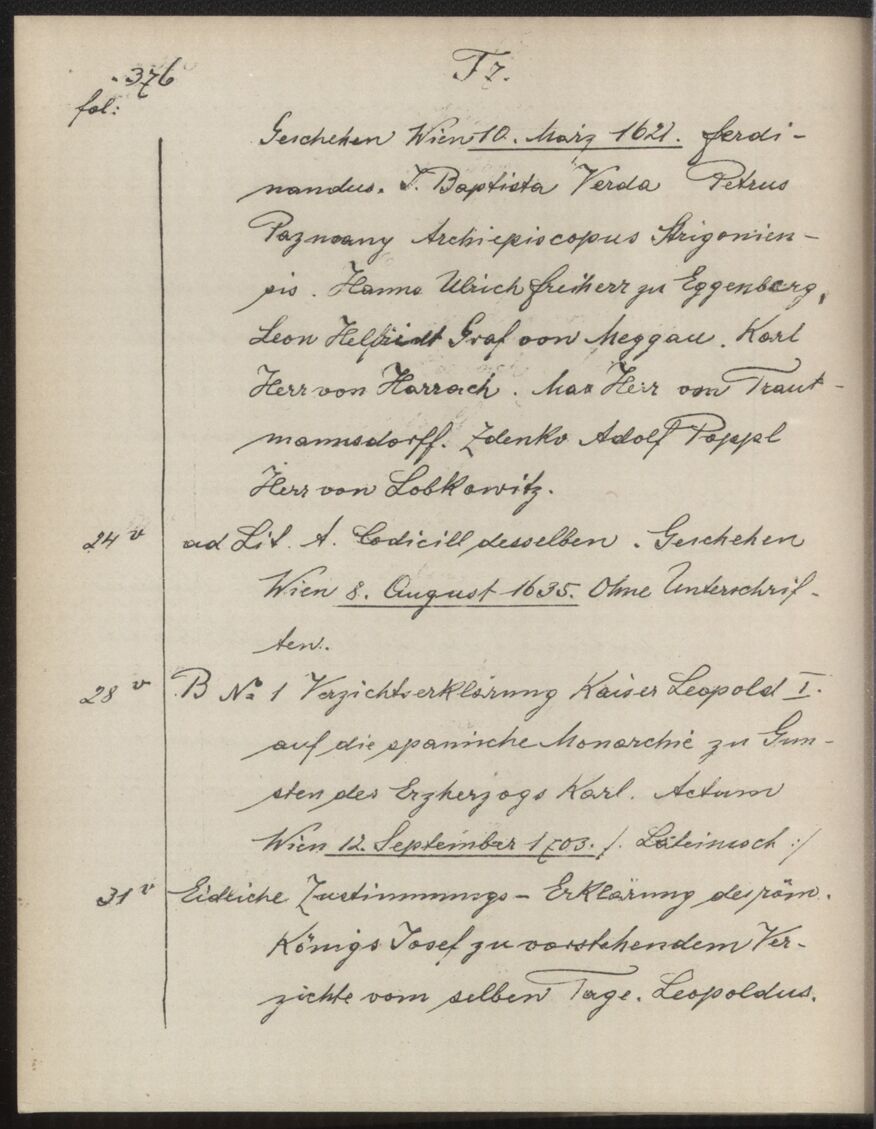 376
F 7.
fol:
Geschehen Wien 10. März 1621. Ferdi-
nandus. J. Baptista Verda Petrus
Pazmany Archiepiscopus Strigonien-
sis. Hanns Ulrich Freiherr zu Eggenberg,
Leon Helfridt Graf von Meggau. Karl
Herr von Harrach. Max Herr von Traut-
mannsdorff. Zdenko Adolf Poppl
Herr von Lobkowitz.
24 v ad Lit. A. Codicill desselben. Geschehen
Wien 8. August 1635. Ohne Unterschrif-
ten.
28 v B No 1 Verzichtserklärung Kaiser Leopold I.
auf die spanische Monarchie zu Gun-
sten des Erzherzogs Karl. Actum
Wien 12. September 1703. /: Lateinisch :/
31 v Eidliche Zustimmungs-Erklärung des röm.
Königs Josef zu vorstehendem Ver-
zichte vom selben Tage. Leopoldus.